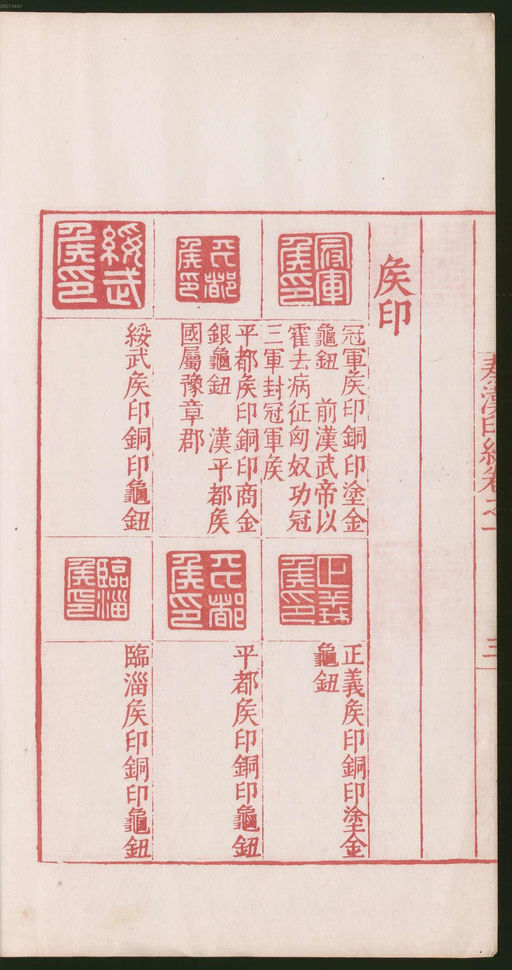 秦漢印統卷之一
三
矦印
冠軍矦印
冠軍矦印銅印塗金
龜鈕　前漢武帝以
霍去病征匈奴功冠
三軍封冠軍矦
平都矦印
平都矦印銅印商金
銀龜鈕　漢平都矦
國屬豫章郡
綏武矦印
綏武矦印銅印龜鈕
正義矦印
正義矦印銅印塗金
龜鈕
平都矦印
平都矦印銅印龜鈕
臨淄矦印
臨淄矦印銅印龜鈕